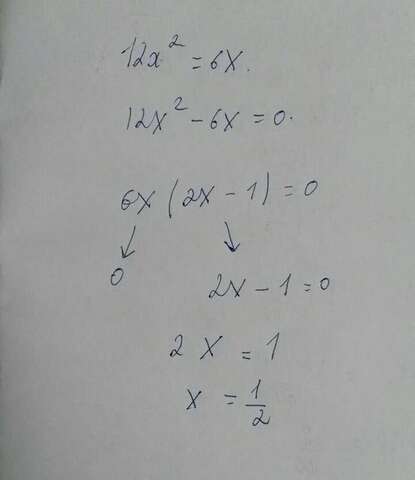 12x² = 6x.
12x² - 6x = 0.
6x (2x - 1) = 0
↙ ↘
0 2x - 1 = 0
2x = 1
x = 1/2